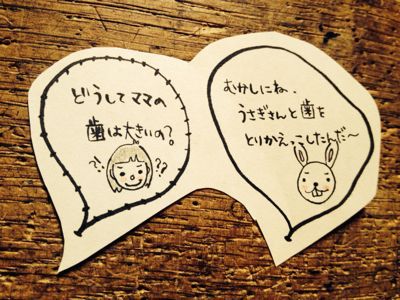 どうしてママの
歯は大きいの?
?!
??
むかしにね、
うさぎさんと歯を
とりかえっこしたんだ〜